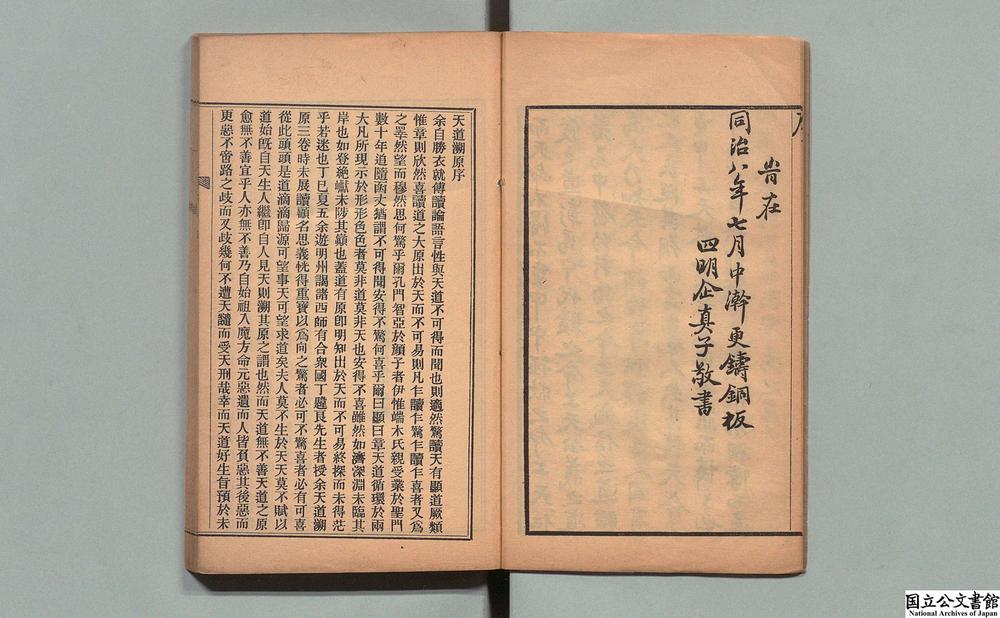 旹在
同治八年七月中澣更鑄銅板
四明企真子敬書
天道溯原序
余自勝衣就傅讀論語言性與天道不可得而聞也則適然驚讀天有顯道厥類
惟章則欣然喜讀道之大原出於天而不可易則凡乍讀乍驚乍讀乍喜者又爲
之睪然望而穆然思何驚乎爾孔門智亞於顏子者伊惟端木氏親受業於聖門
數十年追隨函丈猶謂不可得聞安得不驚何喜乎爾曰顯曰章天道循環於兩
大凡所現示於形形色色者莫非道莫非天也安得不喜雖然如濟深淵未臨其
岸也如登絶巘未陟其巔也蓋道有原卽明知出於天而不可易終探而未得茫
乎若迷也丁巳夏五余遊明州謁諸西師有合衆國丁韙良先生者授余天道溯
原三卷時未展讀顧名思義恍得重寶以爲向之驚者必可不驚喜者必有可喜
從此頭頭是道滴滴歸源可望事天可望求道矣夫人莫不生於天天莫不賦以
道始旣自天生人繼卽自人見天則溯其原之謂也然而天道無不善天道之原
愈無不善宜乎人亦無不善乃自始祖入魔方命元惡遺而人皆負惡其後惡而
更惡不啻路之歧而又歧幾何不遭天譴而受天刑哉幸而天道好生旨預於未
国立公文書館
National Archives of Japan